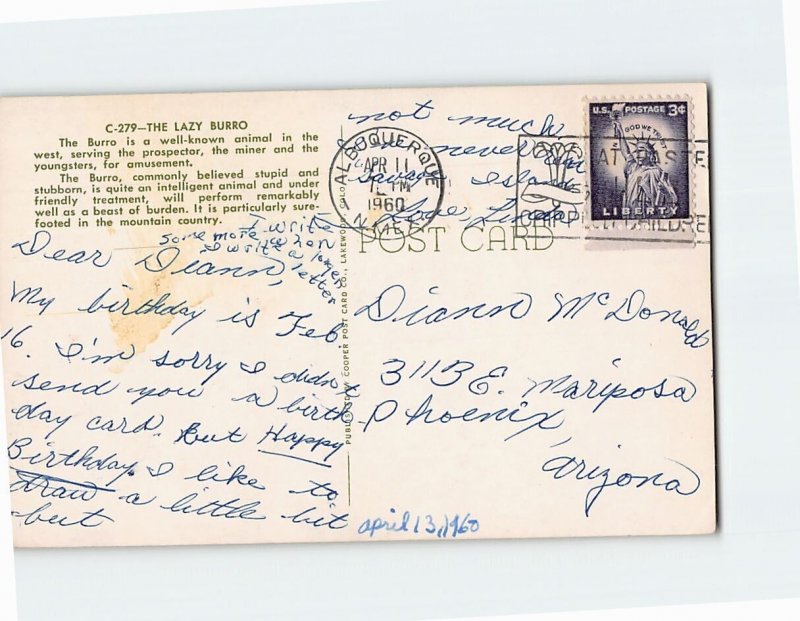 C-279—THE LAZY BURRO
The Burro is a well-known animal in the
west, serving the prospector, the miner and the
youngsters, for amusement.
The Burro, commonly believed stupid and
stubborn, is quite an intelligent animal and under
friendly treatment, will perform remarkably
well as a beast of burden. It is particularly sure-
footed in the mountain country.
I write
some more when
I write a longer
letter
Dear Diann,
My birthday is Feb.
16. I'm sorry I didn't
send you a birth
day card. But Happy
Birthday. I like to
draw a little bit
-but
not much
I've never
Island
Love, Linda
PUBLISHED BY COOPER POST CARD CO., LAKEWOOD, COLO.
ALBUQUERQUE
APR 11
12 PM
1960
N. MEX.
U.S. POSTAGE 3¢
IN GOD WE TRUST
LIBERTY
AT EASTER
CRIPPLED CHILDREN
POST CARD
Diann McDonald
311B E. Mariposa
Phoenix,
Arizona
april 13, 1960